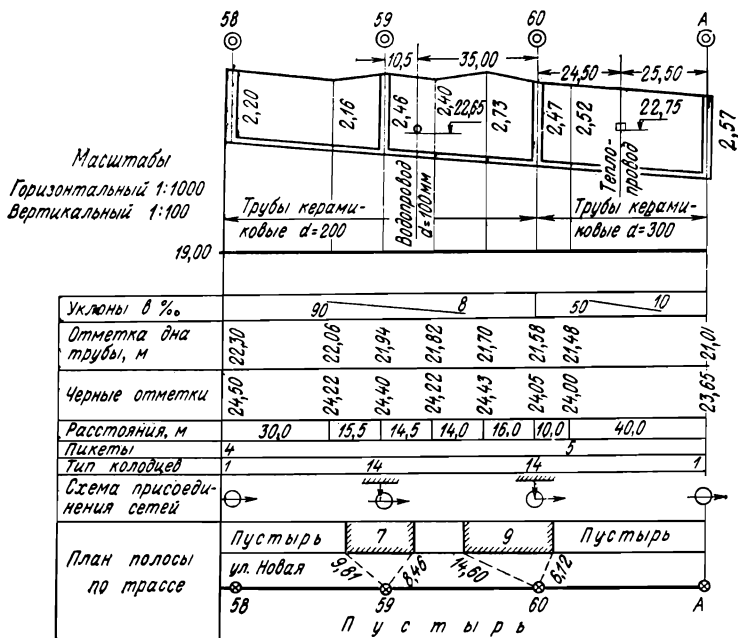 58 59 60 А
10,5 35,00 24,50 25,50
2,20 2,16 2,46 2,40 22,65 2,73 2,47 2,52 22,75 2,57
Водопровод
d=100мм
Тепло-
провод
Масштабы
Горизонтальный 1:1000
Вертикальный 1:100
Трубы керами-
ковые d=200
Трубы керами-
ковые d=300
19,00
Уклоны в ‰ 90 8 50 10
Отметка дна
трубы, м
22,30 22,06 21,94 21,82 21,70 21,58 21,48 21,01
Черные отметки 24,50 24,22 24,40 24,22 24,43 24,05 24,00 23,65
Расстояния, м 30,0 15,5 14,5 14,0 16,0 10,0 40,0
Пикеты 4 5
Тип колодцев 1 14 14 1
Схема присоеди-
нения сетей
План полосы
по трассе
Пустырь 7 9 Пустырь
ул. Новая 9,81 8,46 14,60 6,12
58 59 60 А
Пустырь